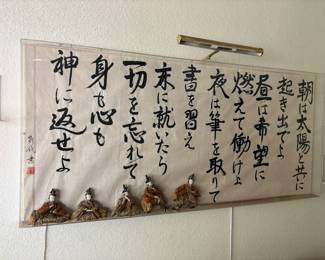 朝は太陽と共に
起き出でよ
昼は希望に
燃えて働けよ
夜は筆を取りて
書を習え
床に就いたら
一切を忘れて
身も心も
神に返せよ